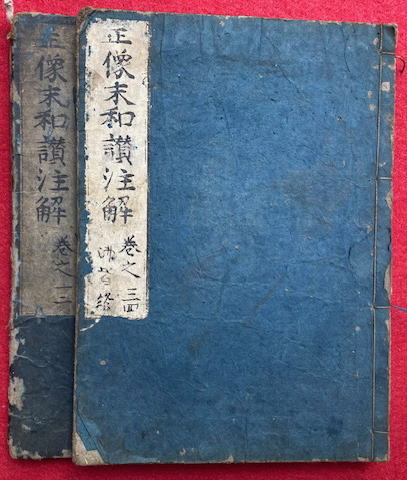 正像末和讃注解
巻之三四
終
正像末和讃注解
巻之一二